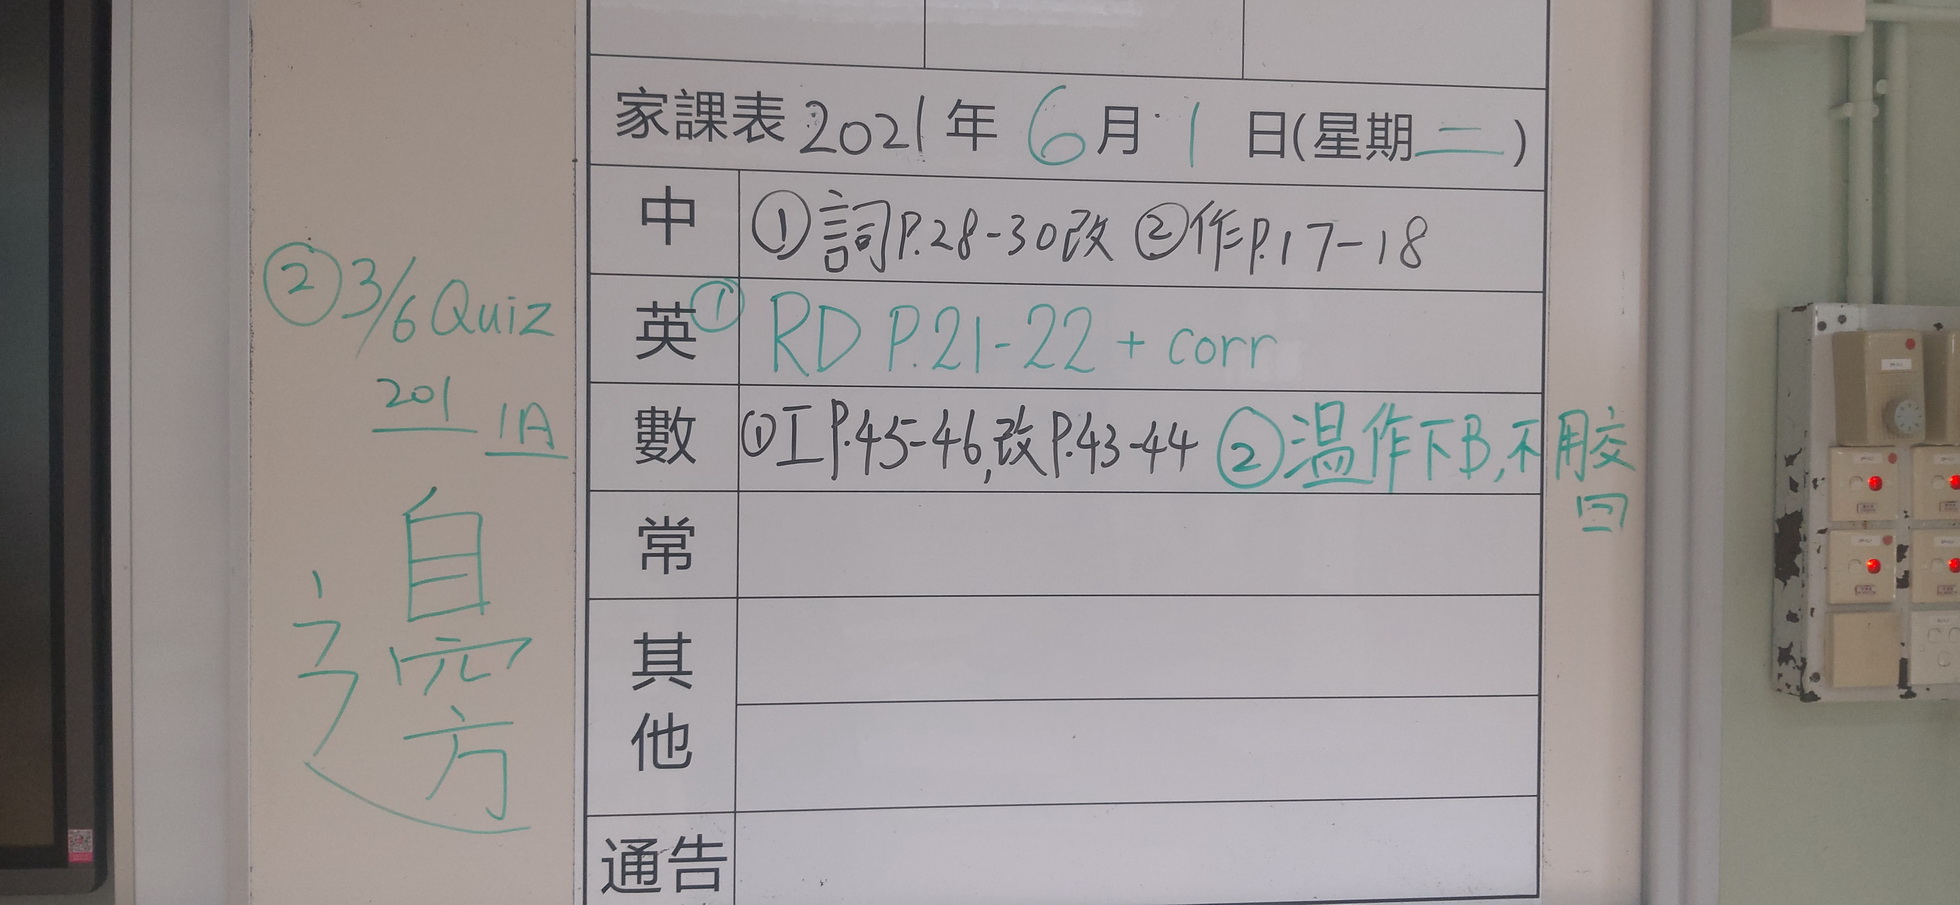 家課表 2021 年 6 月 1 日(星期二)
中 ①詞P.28-30改 ②作P.17-18
英 ① RD P.21-22 + corr
②3/6 Quiz
201 1A
數 ①工P.45-46,改P.43-44 ②温作下B,不用交
常
其他
通告
邊